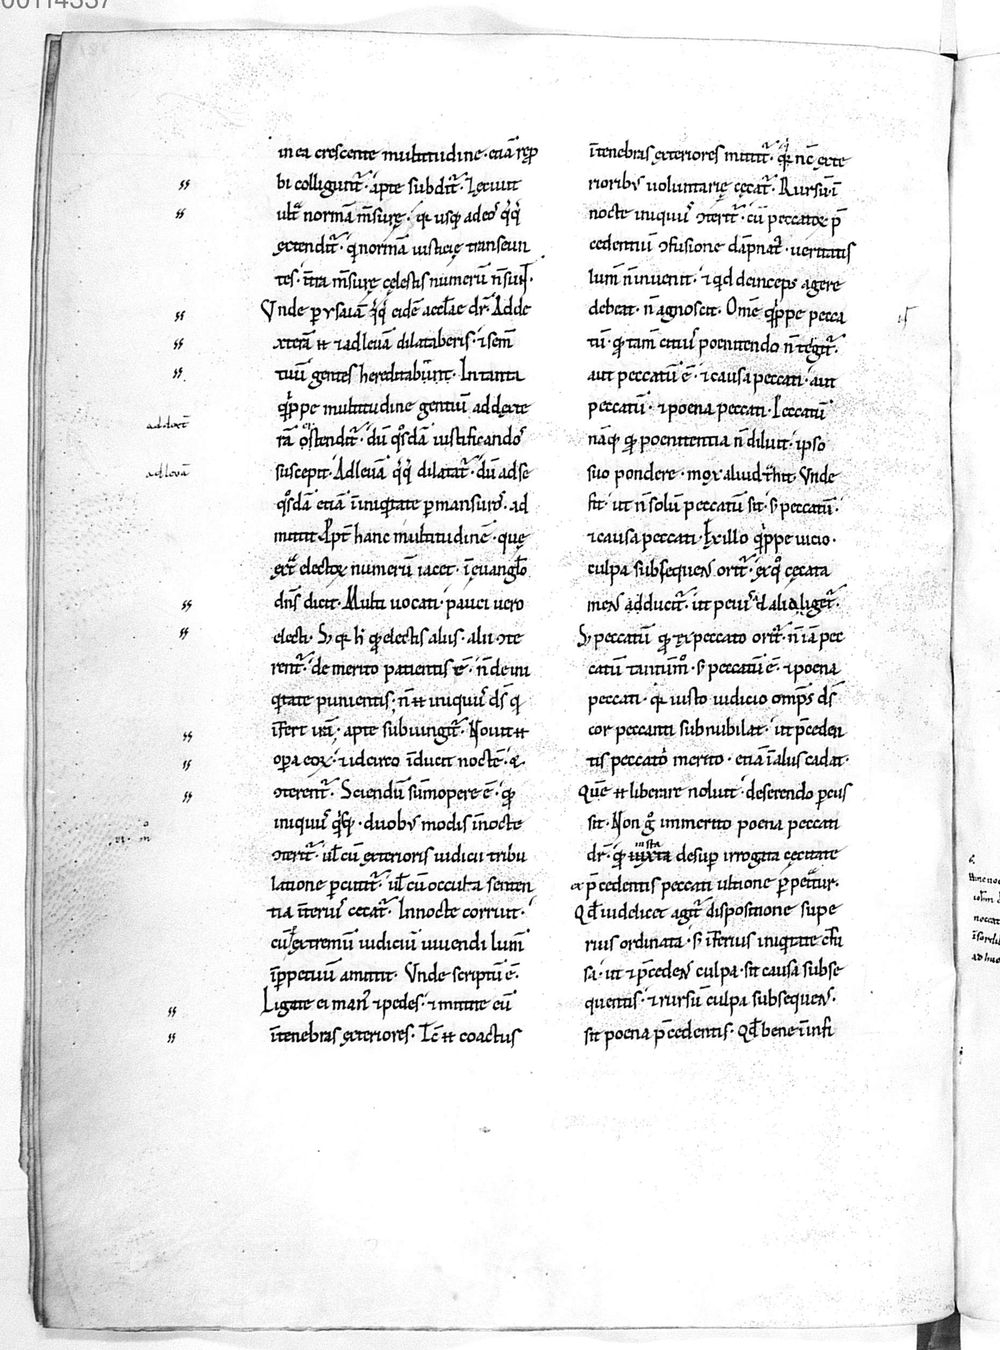 in ea crescente multitudine · etiā rep̄ro
bi colligunt᷑ · apte subdit᷑ · Et eiunt
ult᷑ normā m̄surę · qꝛ usq; adeo q̇q;
extendit᷑ · q normā iusticię transeun
tes · int̄ra m̄suræ cęlestis numerū n̄ sunt ·
Unde per ysaiā q̇q; eidē æccl̄æ dr̄ · Ad dex
xterā &̄ ad leuā dilataberis · & semē
tuū gentes hereditabunt · In tanta
q̇ppe multitudine gentiū ad dexte
rā ostendit᷑ · dū q̊sdā iustificando
suscepit · Ad leuā q̇q; dilatat᷑ · dū ad se
q̊sdā etiā ī iniq̇tate ꝑmansuros · ad
mittit · ꝓpt̄ hanc multitudinē · que
ext᷑ electoꝝ numerū iacet · ī euanglo
dn̄s dicit · Multi uocati · pauci uero
electi · S; qꝛ h̄ qđ electis aliis · alii ɔte
rent᷑ · de merito patientis ē · n̄ de ini
q̇tate punientis; n̄ &̄ iniquus dś q
īfert irā · apte subiungit᷑ · Nouit &̄
opera eoꝝ · & idcirco īducit noctē · &
ɔterent᷑ · Sciendū sūmopere ē · qđ
iniquus q̇sq; · duobus modis ī nocte
ɔterit᷑ · ul̄ cū exterioris iudicii tribu
latione percutit᷑ · ul̄ cū occulta senten
tia īterius cęcat᷑ · In nocte corruit ·
cū ad extremū iudiciū uiuendi lumē
īperpetuū amittit · Unde scriptū ē ·
Ligate ei man' & pedes · & mittite eū
ī tenebras exteriores · Tc̄ &̄ coactus
ad dext
ad leuā
ī tenebras exteriores mittit᷑ · qꝛ nc̄ exte
rioribus uoluntarię cęcat᷑ · Rursū ī
nocte iniquus ɔterit᷑ · cū peccatoꝝ p̄
cedentiū ɔfusione dāpnat' · ueritatis
lumē n̄ inuenit · & qd deinceps agere
debeat · n̄ agnoscit · Omē q̇ppe pecca
tū · qđ tam̄ citius poenitendo n̄ tegit᷑ ·
aut peccatū ē · & causa peccati · aut
peccatū · & poena peccati · Peccatū
nāq; qđ poenitentia n̄ diluit · ipso
suo pondere · mox aliud t̄hit · Unde
fit · ut n̄ solū peccatū sit · s; peccatū ·
& causa peccati · Ex illo q̇ppe uicio ·
culpa subsequens orit᷑ · ex q̊ cęcata
mens adducit᷑ · ut peius ad alia liget᷑ ·
S; peccatū qđ ex peccato orit᷑ · n̄ iā pec
catū tantūm̊ · s; peccatū ē · & poena
peccati · qꝛ iusto iudicio omp̄s dś
cor peccanti subnubilat · ut p̄ceden
tis peccati merito · etiā ī alius cadat ·
Quē &̄ liberare noluit · deserendo ꝑcus
sit · Non g̊ immerito poena peccati
dr̄ · qđ iusta desup irrogata cęcitate
ex p̄cedentis peccati ultione ꝑpetrat᷑ ·
Qđ uidelicet agit᷑ dispositione supe
rius ordinata · s; īferius iniq̇tate cfu
sa · ut & p̄cedens culpa · sit causa subse
quentis · & rursū culpa subsequens ·
sit poena p̄cedentis · Qđ bene ī infi